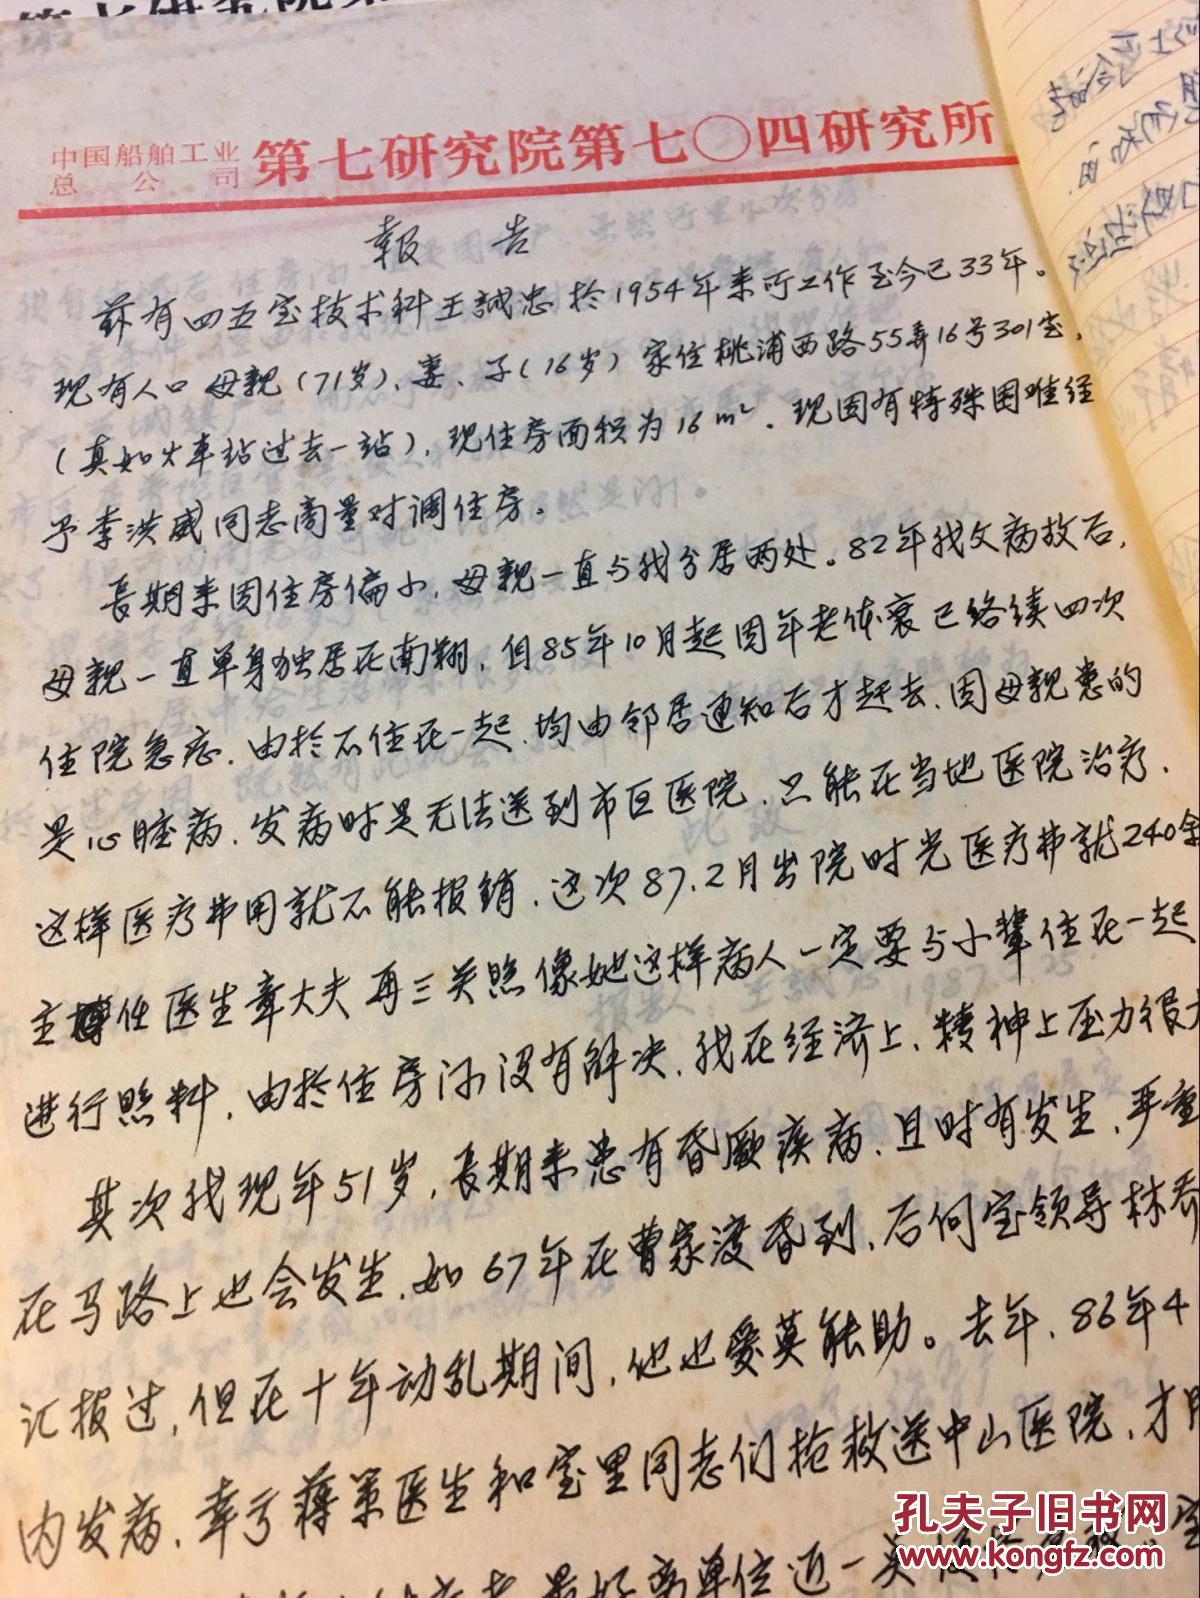 中国船舶工业总公司 第七研究院第七〇四研究所
報告
兹有四五室技术科王誠忠於1954年来所工作至今已33年。
现有人口母親(71岁)、妻、子(16岁)家住桃浦西路55弄16号301室,
(真如火车站过去一站),现住房面积为16m²。现因有特殊困难经
予李洪威同志商量对调住房。
長期来因住房偏小,母親一直与我分居两处。82年我父病故后,
母親一直单身独居在南翔,但85年10月起因年老体衰已络续四次
住院急症,由於不住在一起,均由邻居通知后才赶去,因母親患的
是心脏病,发病时是无法送到市区医院,只能在当地医院治疗,
这样医疗弗用就不能报销,这次87.2月出院时光医疗弗就240余
主任医生章大夫再三关照像她这样病人一定要与小辈住在一起
进行照料,由於住房沵没有解决,我在经济上、精神上压力很大
其次我现年51岁,長期来患有昏厥疾病,且时有发生,严重
在马路上也会发生,如67年在曹家渡昏到,后向室领导林乔
汇报过,但在十年动乱期间,他也爱莫能助。去年,86年4
内发病,幸亏蒋医生和室里同志们抢救送中山医院,才
最好离单位近一
孔夫子旧书网
www.kongfz.com